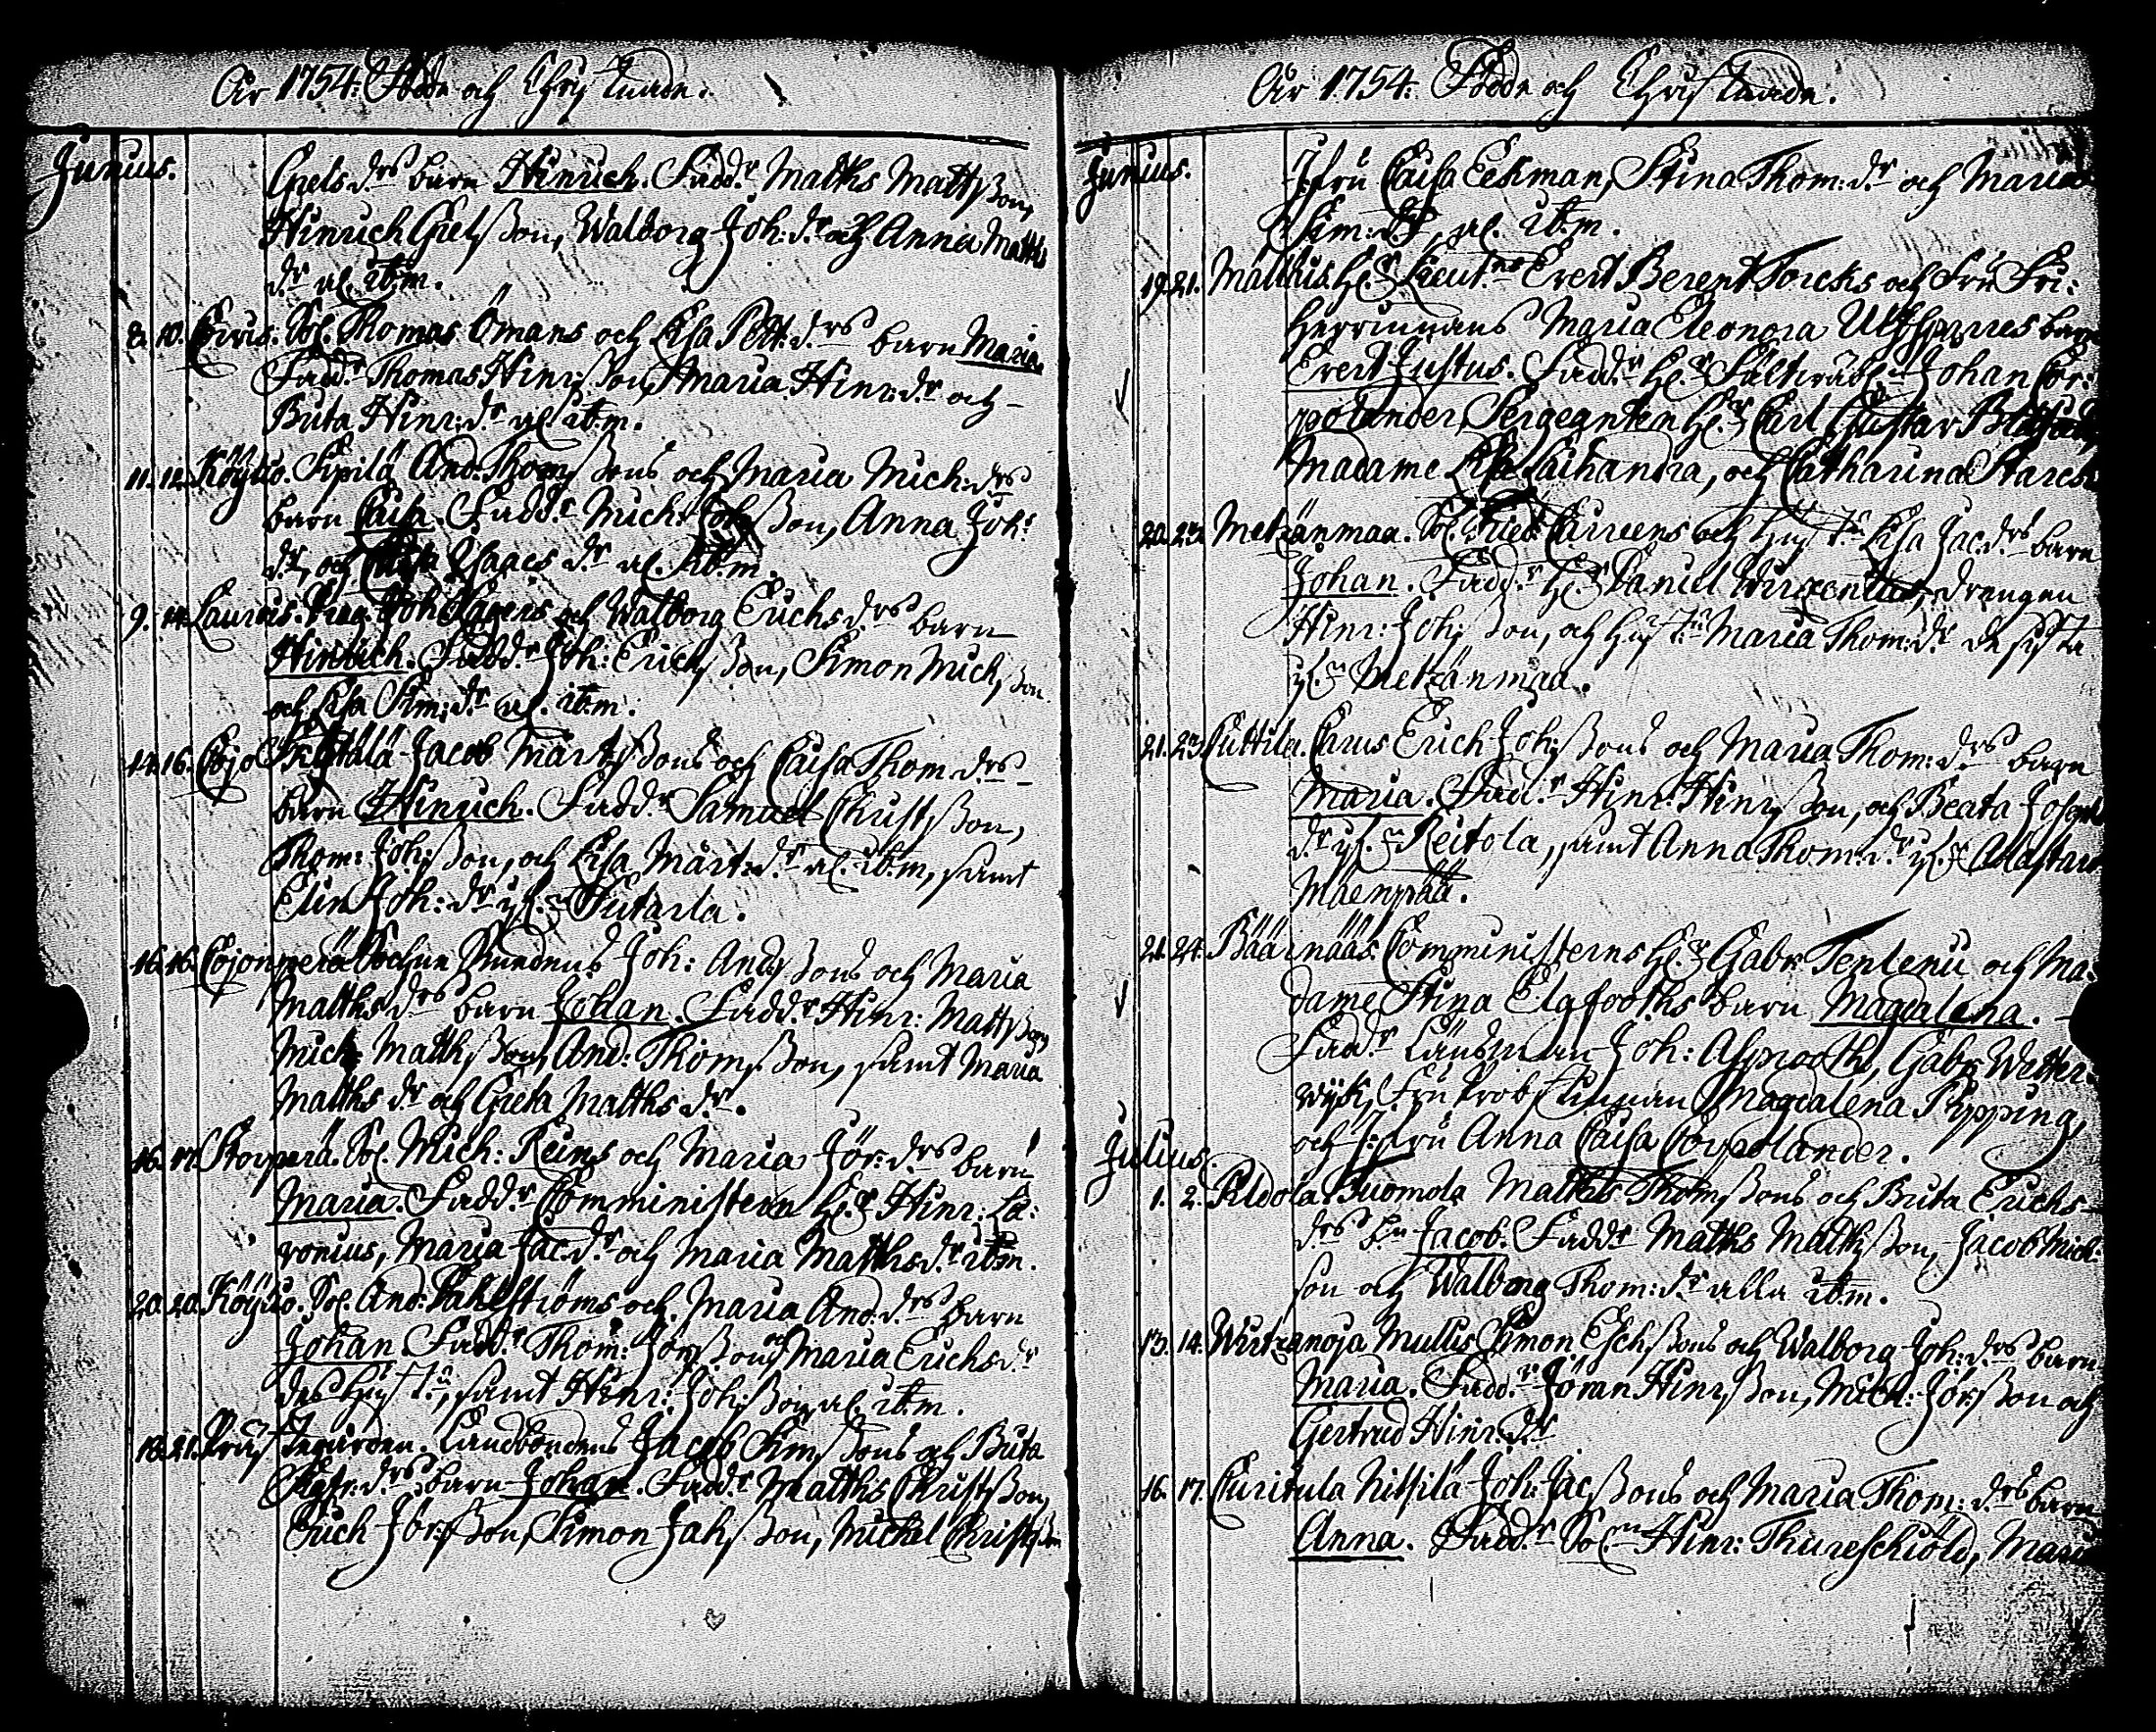 År 1754. Födde och Christnade.
Junius.
Grels d:r barn Hinrich. Fadd:r Matths Mattsson,
Hinrich Grelsson, Walborg Joh: d:r och Anna Matths
d:r al. ib:m.
8. 10. Sol. Thomas Ömans och Lisa Pett: d:rs barn Maria.
Fadd:r Thomas Hinr:sson, Maria Hinr: d:r och
Brita Hinr: d:r al. ib:m.
11. 12. Köyliö. Sipilä And: Thomssons och Maria Mich: d:rs
barn Caisa. Fadd:r Mich: Johsson, Anna Joh:
d:r, och Isaacs d:r al. ib:m.
9. 14. Lauris. Joh: och Walborg Erichs d:rs barn
Hinrich. Fadd:r Joh: Erichsson, Simon Michsson
och Lisa Sim: d:r al. ib:m.
14. 16. Cojo Jacob Märtssons och Caisa Thom d:rs
barn Hinrich. Fadd:r Samuel Christsson,
Thom: Johsson, och Lisa Märt: d:r al. ib:m, samt
Elin Joh: d:r if:n
16. 16. Cojonperä Joh: Andssons och Maria
Matths d:rs barn Johan. Fadd:r Hinr: Mattsson,
Mich: Matthsson, And: Thomsson, samt Maria
Matths d:r och Greta Matths d:r.
16. 17. Sol. Mich: Reims och Maria Jör: d:rs barn
Maria. Fadd:r Comministern H:r Hinr: La:
ronius, Maria Jac: d:r och Maria Matths d:r ib:m.
20. 20. Köyliö. Sol. And: Dahlströms och Maria And: d:rs barn
Johan. Fadd:r Thom: Jörsson och Maria Erichs d:r
des hust:u, samt Hinr: Johsson, al. ib:m.
18. 21. Prästegården. Landbondens Jacob Simssons och Brita
d:rs barn Johan. Fadd:r Matths Christsson,
Erich Jörsson, Simon Jahsson, Michel Christsson
År 1754. Födde och Christnade.
Junius.
J:fru Caisa Eekman, Stina Thom: d:r och Maria
Sim: d:r, al. ib:m.
19. 21. H:r Lieut:ns Evert Berent Torcks och Fru Fri:
herrinnans Maria Eleonora barn
Evert Justus. Fadd:r H:r Johan Cor:
polander, Sergeanten H:r Carl Gustav
Madame Lisa, och Catharina
20. 23. Metzänmaa. Sol. och hust:u Lisa Jac: d:rs barn
Johan. Fadd:r H:r Daniel Wirzenius, drengen
Hinr: Johsson, och hust:u Maria Thom: d:r de sista
if:n Metzänmaa.
21. 23. Cuttila. Erich Johssons och Maria Thom: d:rs barn
Maria. Fadd:r Hinr: Hinrsson, och Beata Joseph
d:r if:n Reitola, samt Anna Thom: d:r if:n Alastaro
Mäenpää.
21. 24. Comministerns H:r Gabr: Tenleni och Ma:
dame Stina Elgfooths barn Magdalena.
Fadd:r Länsman Joh: Asprooth, Gabr: Wetter:
wijk, Fru Probstinnan Magdalena Rypping,
och J:fru Anna Caisa Corpolander.
Julius.
1. 2. Tuomola Matths Thomssons och Brita Erichs
d:rs b:n Jacob. Fadd:r Matths Matthsson, Jacob Mich:
son och Walborg Thom: d:r alla ib:m.
13. 14. Wirtzanoja Mullis Simon Eschssons och Walborg Joh: d:rs barn
Maria. Fadd:r Jöran Hinrsson, Mich: Jörsson och
Gertrud Hinr: d:r
16. 17. Nitsilä Joh: Jacssons och Maria Thom: d:rs barn
Anna. Fadd:r Sol:n Hinr: Thureschiöld, Maria